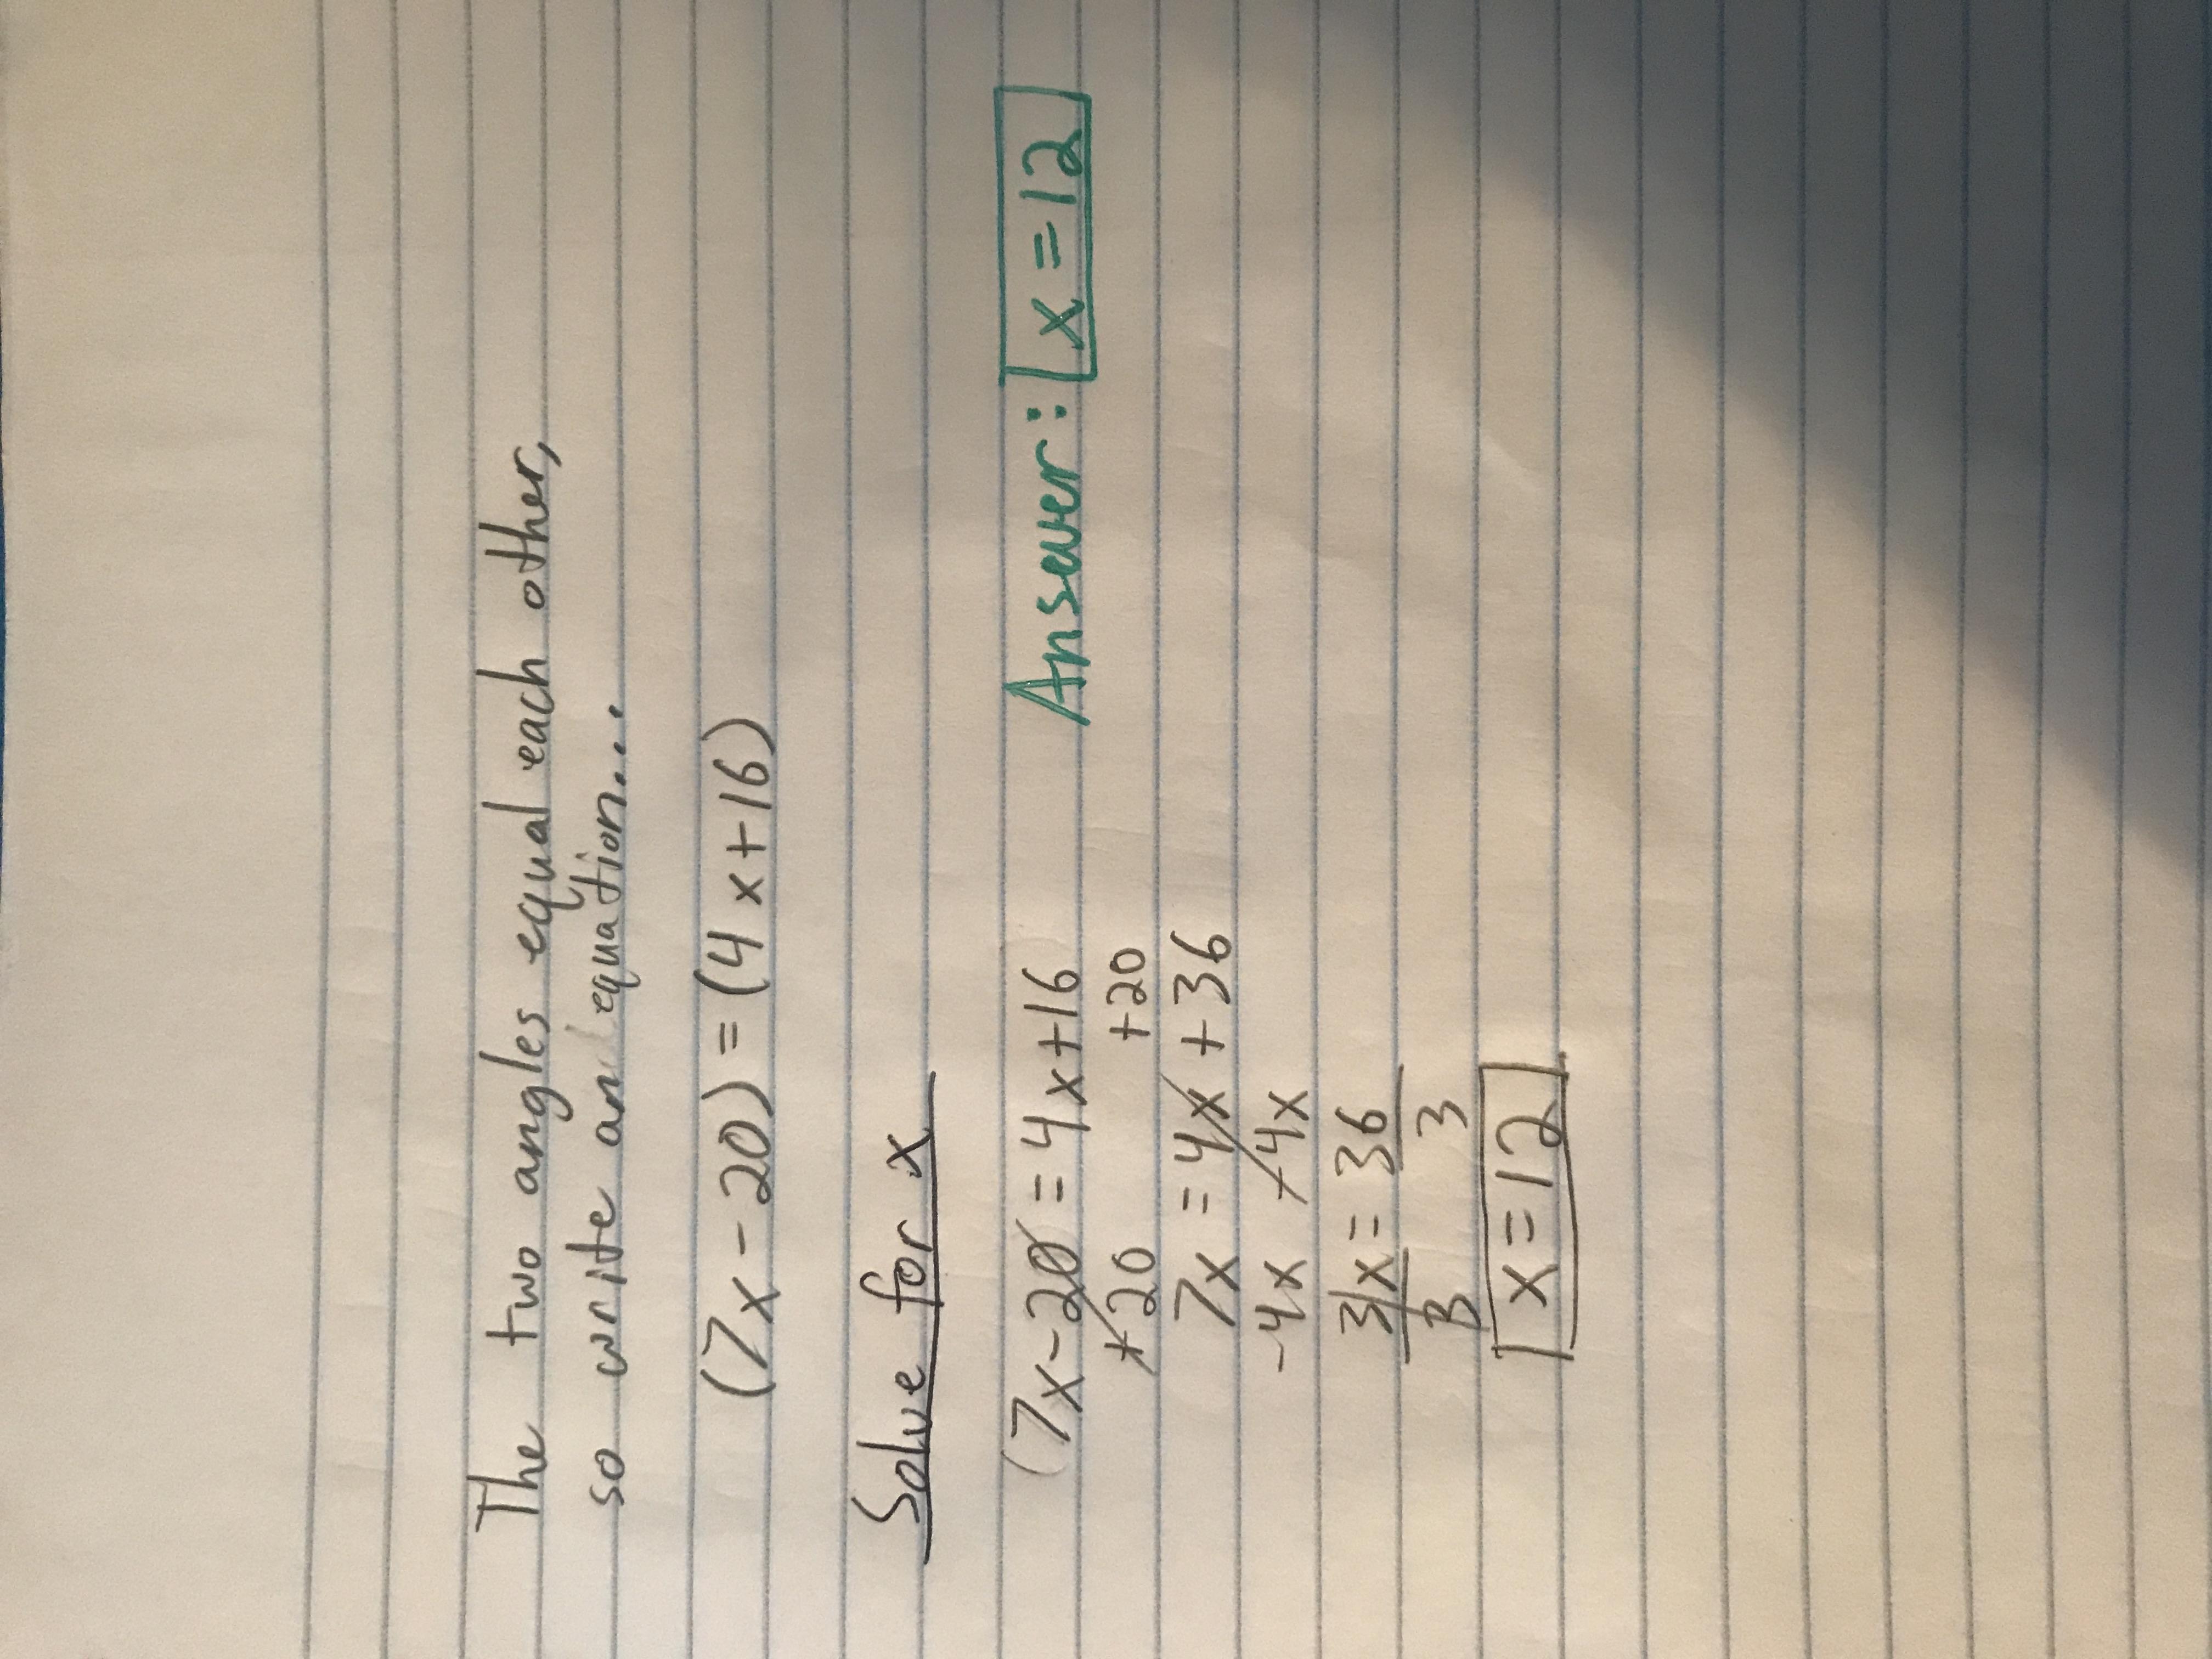 The two angles equal each other,
so write an equation...
(7x-20) = (4x+16)
Solve for x
(7x-20 = 4x+16
+20 +20
7x = 4x + 36
-4x -4x
3x = 36
3 3
x=12
Answer: x=12